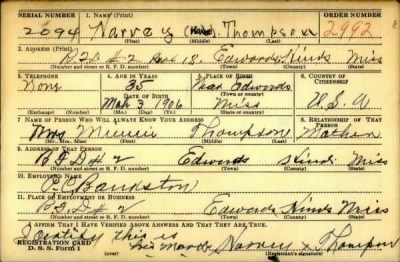 SERIAL NUMBER 1. NAME (Print) ORDER NUMBER
2094 Harvey (None) Thompson 2992
(First) (Middle) (Last)
2. ADDRESS (Print)
R.F.D. # 2 Box 18. Edwards Hinds Miss
(Number and street or R. F. D. number) (Town) (County) (State)
3. TELEPHONE 4. AGE IN YEARS 5. PLACE OF BIRTH 6. COUNTRY OF CITIZENSHIP
None 35 Near Edwards
DATE OF BIRTH (Town or county)
Mar 3 1906 Miss U.S.A
(Exchange) (Number) (Mo.) (Day) (Yr.) (State or country)
7. NAME OF PERSON WHO WILL ALWAYS KNOW YOUR ADDRESS 8. RELATIONSHIP OF THAT PERSON
Mrs Minnie Thompson Mother
(Mr., Mrs., Miss) (First) (Middle) (Last)
9. ADDRESS OF THAT PERSON
R F D # 2 Edwards Hinds Miss
(Number and street or R. F. D. number) (Town) (County) (State)
10. EMPLOYER'S NAME
Bankston
11. PLACE OF EMPLOYMENT OR BUSINESS
R F D # 2 Edwards Hinds Miss
(Number and street or R. F. D. number) (Town) (County) (State)
I AFFIRM THAT I HAVE VERIFIED ABOVE ANSWERS AND THAT THEY ARE TRUE.
I certify this is
REGISTRATION CARD his mark Harvey x Thompson
D. S. S. Form 1 (Registrant's signature)